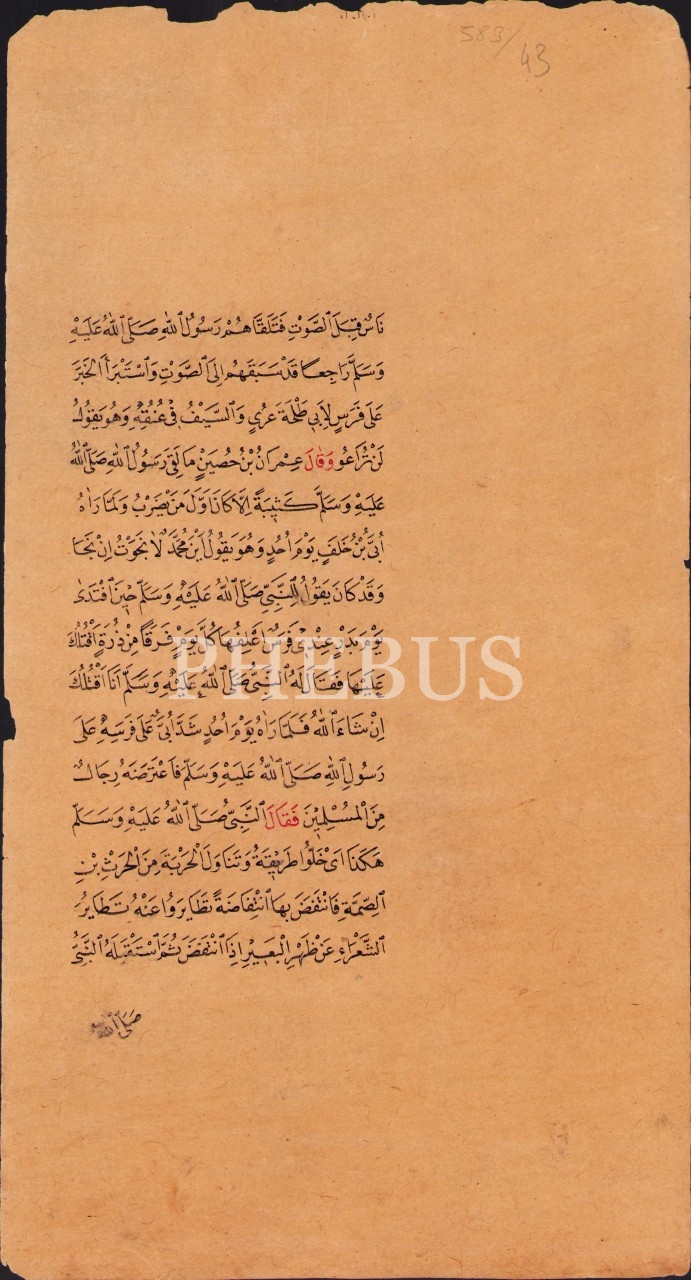 583/
43
نَاسٌ قِبَلَ الصَّوْتِ فَتَلَقَّاهُمْ رَسُولُ اللهِ صَلَّى اللهُ عَلَيْهِ
وَسَلَّمَ رَاجِعًا قَدْ سَبَقَهُمْ اِلَى الصَّوْتِ وَاسْتَبْرَأَ الْخَبَرَ
عَلَى فَرَسٍ لِاَبِى طَلْحَةَ عُرْىٍ وَالسَّيْفُ فِى عُنُقِهِ وَهُوَ يَقُولُ
لَنْ تُرَاعُو وَقَالَ عِمْرَانُ بْنُ حُصَيْنٍ مَا لَقِىَ رَسُولُ اللهِ صَلَّى اللهُ
عَلَيْهِ وَسَلَّمَ كَتِيبَةً اِلَّا كَانَ اَوَّلَ مَنْ يَضْرِبُ وَلَمَّا رَاٰهُ
اُبَىُّ بْنُ خَلَفٍ يَوْمَ اُحُدٍ وَهُوَ يَقُولُ اَيْنَ مُحَمَّدٌ لَا نَجَوْتُ اِنْ نَجَا
وَقَدْ كَانَ يَقُولُ لِلنَّبِىِّ صَلَّى اللهُ عَلَيْهِ وَسَلَّمَ حِينَ افْتَدٰى
يَوْمَ بَدْرٍ عِنْدِى فَرَسٌ اَعْلِفُهَا كُلَّ يَوْمٍ فَرَقًا مِنْ ذُرَةٍ اَقْتُلُكَ
عَلَيْهَا فَقَالَ لَهُ النَّبِىُّ صَلَّى اللهُ عَلَيْهِ وَسَلَّمَ اَنَا اَقْتُلُكَ
اِنْ شَاءَ اللهُ فَلَمَّا رَاٰهُ يَوْمَ اُحُدٍ شَدَّ اُبَىٌّ عَلَى فَرَسِهِ عَلَى
رَسُولِ اللهِ صَلَّى اللهُ عَلَيْهِ وَسَلَّمَ فَاعْتَرَضَهُ رِجَالٌ
مِنَ الْمُسْلِمِينَ فَقَالَ النَّبِىُّ صَلَّى اللهُ عَلَيْهِ وَسَلَّمَ
هَكَذَا اَىْ خَلُّوا طَرِيقَهُ وَتَنَاوَلَ الْحَرْبَةَ مِنَ الْحَرْثِ بْنِ
الصِّمَّةِ فَانْتَفَضَ بِهَا انْتِفَاضَةً تَطَايَرُوا عَنْهُ تَطَايُرَ
الشَّعْرَاءِ عَنْ ظَهْرِ الْبَعِيرِ اِذَا انْتَفَضَ ثُمَّ اسْتَقْبَلَهُ النَّبِىُّ
صَلَّى اللهُ
PHEBUS